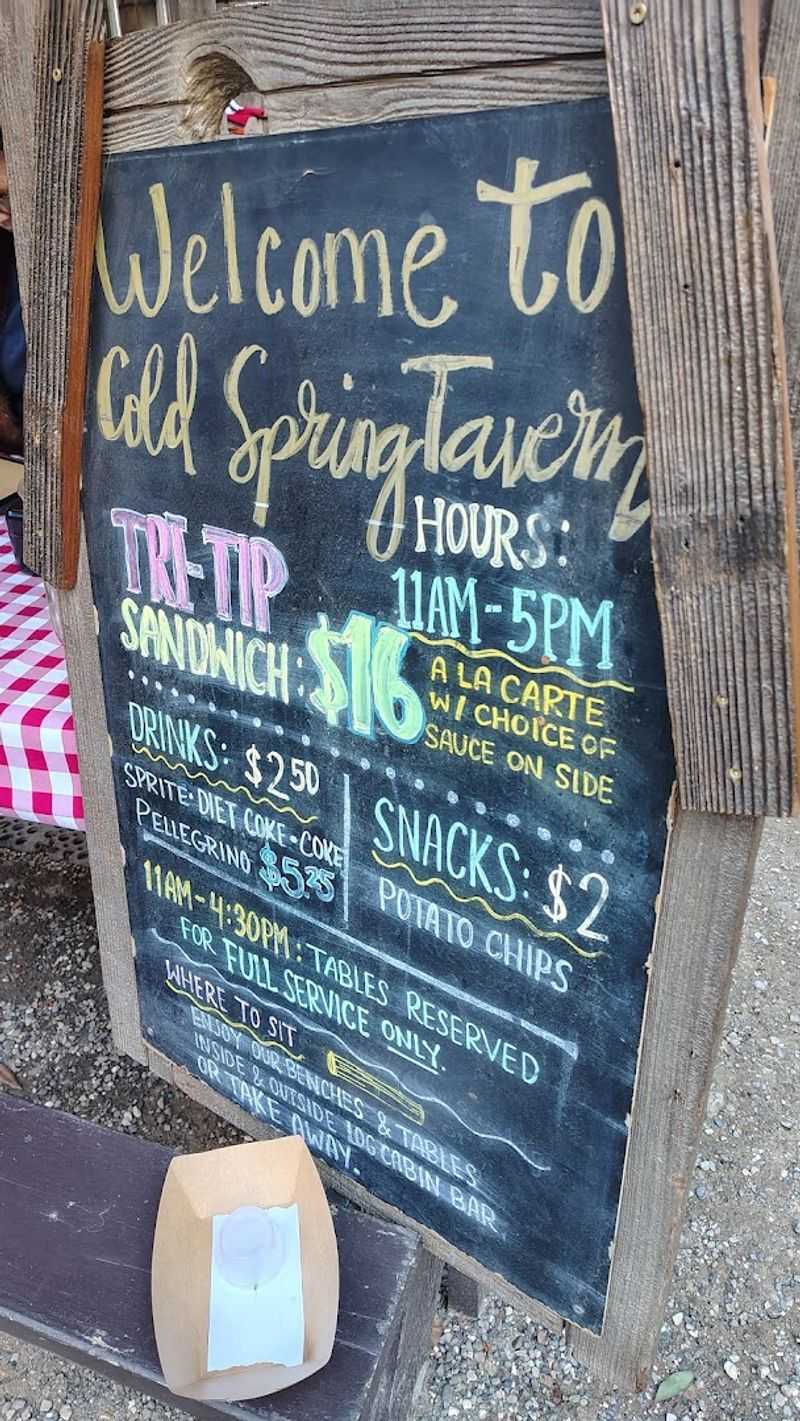 Welcome to
Cold Spring Tavern
TRI-TIP
SANDWICH: $16
HOURS:
11AM-5PM
A LA CARTE
W/ CHOICE OF
SAUCE ON SIDE
DRINKS: $2.50
SPRITE • DIET COKE • COKE
PELLEGRINO $5.25
SNACKS: $2
POTATO CHIPS
11AM-4:30PM: TABLES RESERVED
FOR FULL SERVICE ONLY.
WHERE TO SIT
ENJOY OUR BENCHES & TABLES
INSIDE & OUTSIDE LOG CABIN BAR
OR TAKE AWAY.